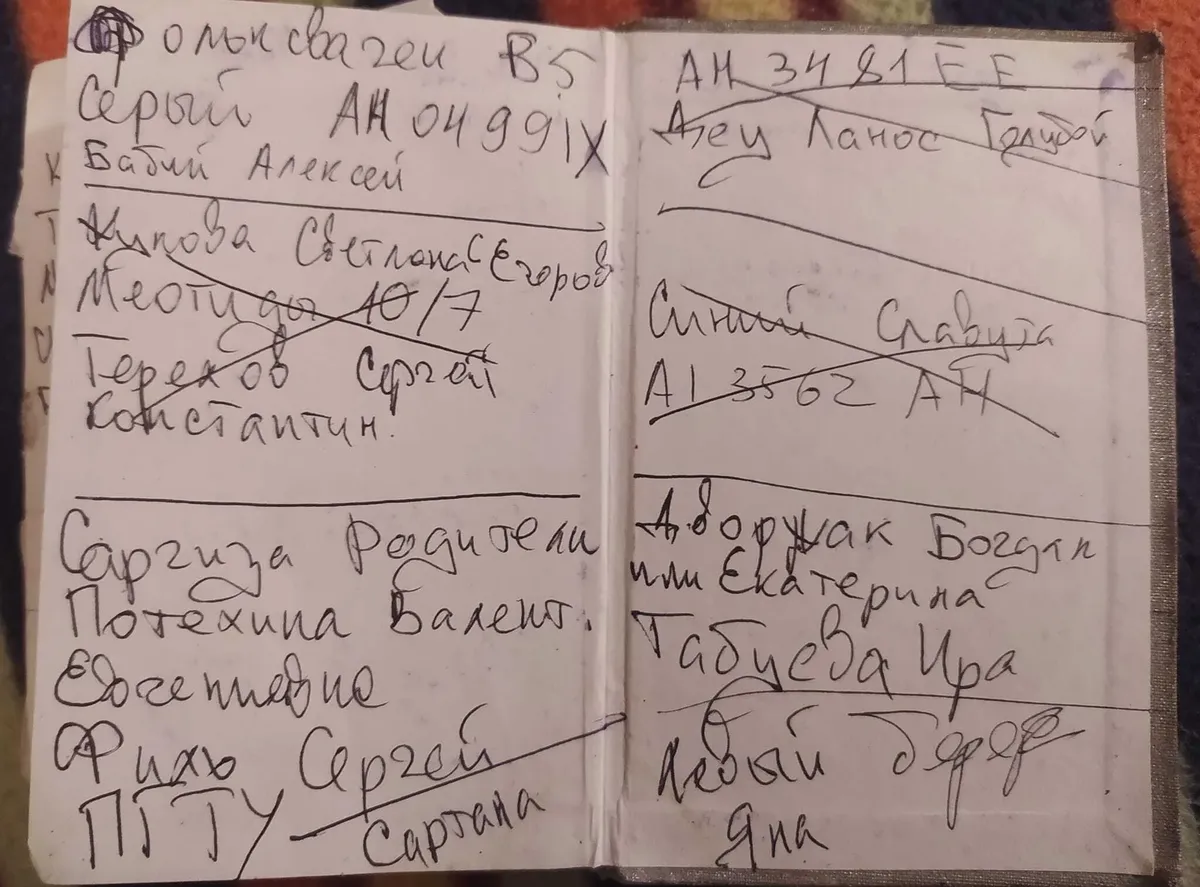 Фольксваген В5
Серый АН 0499 IX
Бабий Алексей
Жукова Светлана (Егоров
Меотиды 10/7
Терехов Сергей
Константин.
Саргиза Родители
Потехина Валент.
Евгениевна
Фихь Сергей
ПГТУ
Сартана
АН 3481 ЕЕ
Деу Ланос Голубой
Синий Славута
АІ 3562 АН
Дворжак Богдан
или Екатерина
Табуева Ира
Левый берег
Яна